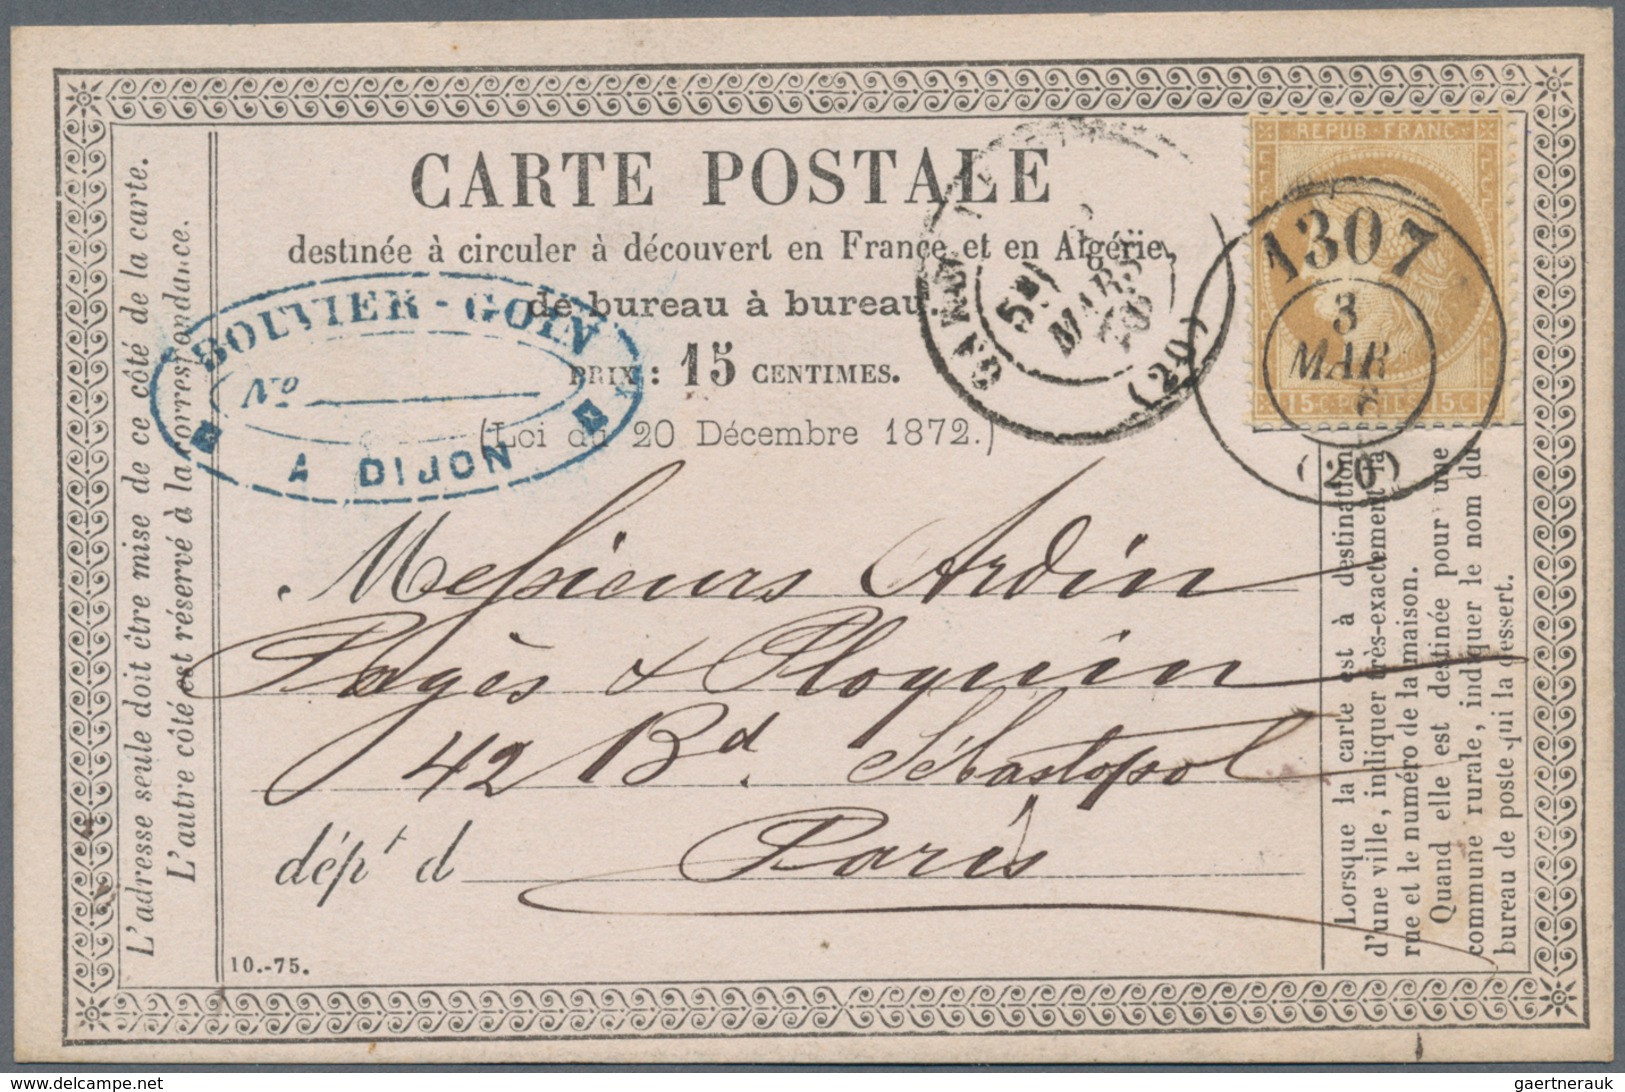 CARTE POSTALE
destinée à circuler à découvert en France et en Algérie,
de bureau à bureau.
PRIX : 15 CENTIMES.
(Loi du 20 Décembre 1872.)
BOUVIER-GOIN
No
A DIJON
5E
MARS
76
(20)
REPUB·FRANC
15c POSTES 15c
1307
3
MAR
(20)
Messieurs Ardin
Pagès & Ploquin
42 Bd. Sébastopol
dépt d Paris
L'adresse seule doit être mise de ce côté de la carte.
L'autre côté est réservé à la correspondance.
Lorsque la carte est à destination
d'une ville, indiquer très-exactement la
rue et le numéro de la maison.
Quand elle est destinée pour une
commune rurale, indiquer le nom du
bureau de poste qui la dessert.
10.-75.
www.philasearch.com
gaertnerauk